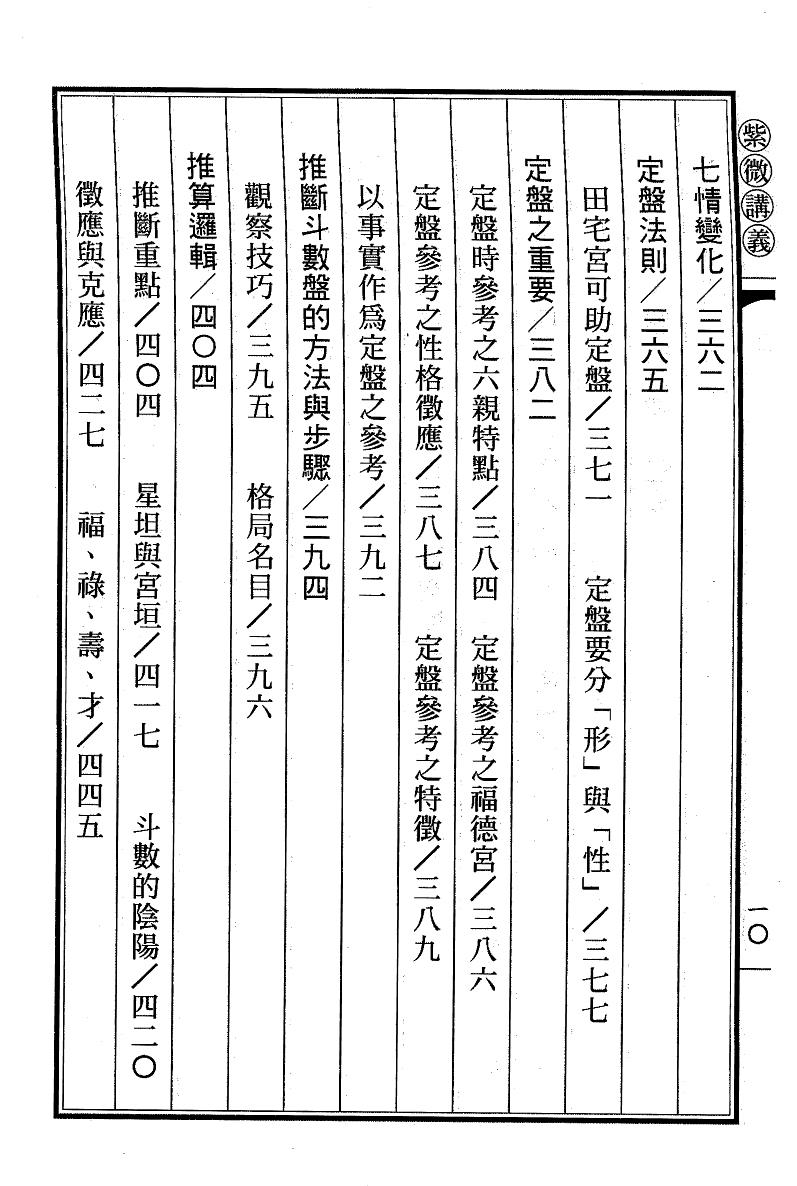 紫微講義
一〇
七情變化／三六二
定盤法則／三六五
田宅宮可助定盤／三七一　定盤要分「形」與「性」／三七七
定盤之重要／三八二
定盤時參考之六親特點／三八四　定盤參考之福德宮／三八六
定盤參考之性格徵應／三八七　定盤參考之特徵／三八九
以事實作爲定盤之參考／三九二
推斷斗數盤的方法與步驟／三九四
觀察技巧／三九五　格局名目／三九六
推算邏輯／四〇四
推斷重點／四〇四　星坦與宮垣／四一七　斗數的陰陽／四二〇
徵應與克應／四二七　福、祿、壽、才／四四五